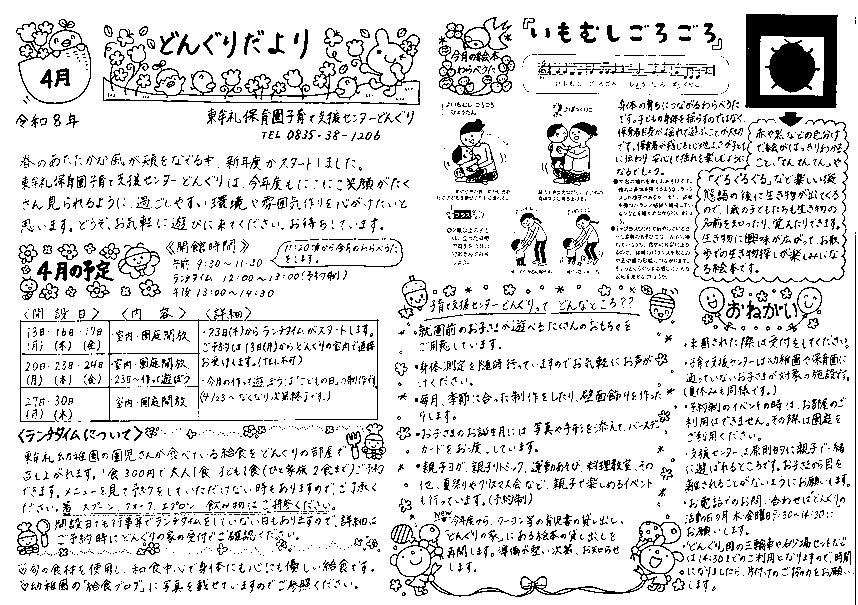 4月
どんぐりだより
令和8年
東牟礼保育園子育て支援センターどんぐり
TEL 0835-38-1206
春のあたたかな風が頬をなでる中、新年度がスタートしました。
東牟礼保育園子育て支援センターどんぐりは、今年度もにこにこ笑顔がたく
さん見られるように、過ごしやすい環境や雰囲気作りを心がけたいと
思います。どうぞ、お気軽に遊びに来てください。お待ちしています。
4月の予定
《開館時間》
午前 9:30~11:30
ランチタイム 12:00~13:00(予約制)
午後 13:00~14:30
11:20頃から今月のわらべうた
をします。
〈開設日〉 〈内容〉 〈詳細〉
13日・16日・17日
(月) (木) (金)
室内・園庭開放
・23日(木)からランチタイムがスタートします。
ご予約は13日(月)からどんぐりの室内で直接
お受けします。(TEL不可)
20日・23日・24日
(月) (木) (金)
室内・園庭開放
23日~作って遊ぼう
・今月の作って遊ぼうは「こどもの日」の制作です。
(4/23~なくなり次第終了です。)
27日・30日
(月) (木)
室内・園庭開放
〈ランチタイムについて〉
東牟礼幼稚園の園児さんが食べている給食をどんぐりの部屋で
召し上がれます。1食300円で大人1食 子ども1食(ひと家族2食まで)ご予約
できます。メニューを見て予約をしていただけない時もありますので、ご了承く
ださい。箸 スプーン フォーク エプロン 飲み物はご持参ください。
開設日でも行事等でランチタイムをしていない日もありますので、詳細は
ご予約時にどんぐりの家の受付でご確認ください。
♡旬の食材を使用し、和食中心で身体にも心にも優しい給食です。
♡幼稚園の「給食ブログ」に写真を載せていますのでご参照ください。
今月の絵本
わらべうた
『いもむしごろごろ』
身体の育ちにつながるわらべうた
です。子どもの身体を揺らすのではなく、
保育者自身が揺れて遊ぶことが大切
です。保育者が感じる心地よさが子ども
に伝わり、安心して揺れを楽しむように
なるでしょう。
赤や黒などの色分け
で絵がはっきりわかる
こと、「てんてんてん」や
「ぐるぐるぐる」など楽しい擬
態語の後に生き物が出てくる
ので、1歳の子どもたちも生き物の
名前を知ったり、覚えたりできます。
生き物に興味が広がって、お散
歩での生き物探しが楽しみにな
る絵本です。
子育て支援センターどんぐりって どんなところ??
・就園前のお子さが遊べるたくさんのおもちゃを
ご用意しています。
・身体測定を随時行っていますのでお気軽にお声が
けください。
・毎月、季節に合った制作をしたり、壁面飾りを作った
りします。
・お子さまのお誕生月には写真や手形を添えて、バースデー
カードをお渡ししています。
・親子ヨガ、親子リトミック、運動あそび、料理教室、その
他、夏祭りやクリスマス会など、親子で楽しめるイベント
も行っています。(予約制)
NEW
今年度から、クーヨン等の育児書の貸し出し、
どんぐりの家にある絵本の貸し出しを
再開します。準備が整い次第、お知らせ
します。
おねがい
・来園された際は受付をしてください。
・子育て支援センターは幼稚園や保育園に
通っていないお子さまが対象の施設です。
(夏休みも同様です。)
・予約制のイベントの時は、お部屋のご
利用はできません。その際は園庭を
ご利用ください。
・支援センターは原則的に親子で一緒
に遊ばれるところです。お子さまから目を
離されることがないようにお願いします。
・お電話でのお問い合わせはどんぐりの
活動日9月木金曜日9:30~14:30に
お願いします。
・「どんぐり」用の三輪車や砂場セットなど
は14:30までのご利用となりますので、時間
になりましたら、片付けのご協力をお願い
します。